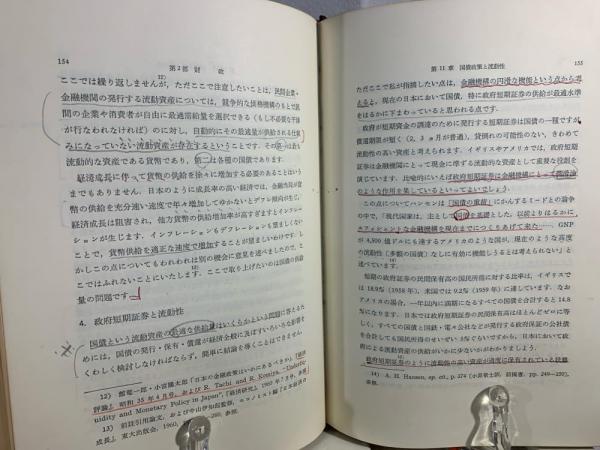 154
第2部 財 政
12)
ここでは繰り返しませんが,ただここで注意したいことは,民間企業・
金融機関の発行する流動資産については,競争的な価格機構のもとで民
間の企業や消費者が自由に最適需給量を選択できる(もし不必要な干渉
が行なわれなければ)のに対し,自動的にその最適量が供給される仕組
みになっていない流動資産が存在するということです.その第一は最も
流動的な資産である貨幣であり,第二は各種の国債であります.
経済成長に伴って貨幣の供給を徐々に増加する必要のあることはいう
までもありません.日本のように成長率の高い経済では,金融当局が貨
幣の供給を充分速い速度で年々増加してゆかないとデフレ傾向が生じ,
経済成長は阻害され,他方貨幣の供給増加率が高すぎますとインフレー
ションが生じます.インフレーションもデフレーションも望ましくない
ことで,貨幣供給を適正な速度で増加することが望ましいわけです.し
かしこの点についてもわれわれは別の機会に意見を述べましたので,こ
こではふれないことにいたします.ここで取り上げたいのは国債の供給
13)
量の問題です.
4. 政府短期証券と流動性
国債という流動資産の最適な供給量はいくらかという問題に答えるた
めには,国債の発行・保有・償還が経済全般に及ぼすいろいろな影響を
くわしく検討しなければならず,簡単に結論を導くことはできません.
12) 館竜一郎・小宮隆太郎「日本の金融政策はいかにあるべきか」『経済
評論』昭和35年4月号,および R. Tachi and R. Komiya, "Underliq-
uidity and Monetary Policy in Japan",『経済研究』, 1960年7月号, 参照.
13) 前註引用論文,および中山伊知郎監修,エコノミスト編『日本経済の
成長』東大出版会, 1960, 参照.
第11章 国債政策と流動性
155
ただここで私が指摘したい点は,金融機構の円滑な機能という点から考
えると,現在の日本において国債,特に政府短期証券の供給が最適水準
をはるかに下まわっていると思われる点です.
政府が短期資金の調達のために発行する短期証券は国債の一種ですが,
償還期限が短く(2,3ヵ月が普通),貸倒れの可能性のない,きわめて
流動性の高い資産と考えられます.イギリスやアメリカでは,政府短期
証券は金融機関にとって現金に準ずる流動的な資産として重要な役割を
演じています.比喩的にいえば政府短期証券は金融機構にとって潤滑油
のような作用を果しているといってよいでしょう.
この点についてハンセンは「国債の重荷」にかんするミードとの論争
の中で,「現代国家は,主として国債を基礎とした,以前よりはるかに
スムーズな金融機構を現在までにつくりあげて来た…… GNP
が4,500億ドルにも達するアメリカのような国が,現在のような高度
の流動性(多額の国債)なしに有効に機能しうるとは考えられない」と
14)
述べています.
短期の政府証券の民間保有高の国民所得に対する比率は,イギリスで
は18.9%(1958年),米国では9.2%(1959年)に達しています.なお
アメリカの場合,一年以内に満期になるすべての国債を合計すると14.8
%になります.日本では政府短期証券の民間保有高はほとんどゼロに等
しく,すべての国債と国鉄・電々公社などが発行する政府保証の公社債
を合計しても国民所得のせいぜい5%ぐらいですから,日本において政
府による流動資産の供給がいかに少ないかがわかりましょう.
政府短期証券のように流動性の高い資産が適度に保有されている状態
14) A. H. Hansen, op. cit., p. 274 (小原敬士訳,前掲書, pp. 249—250),
参照.